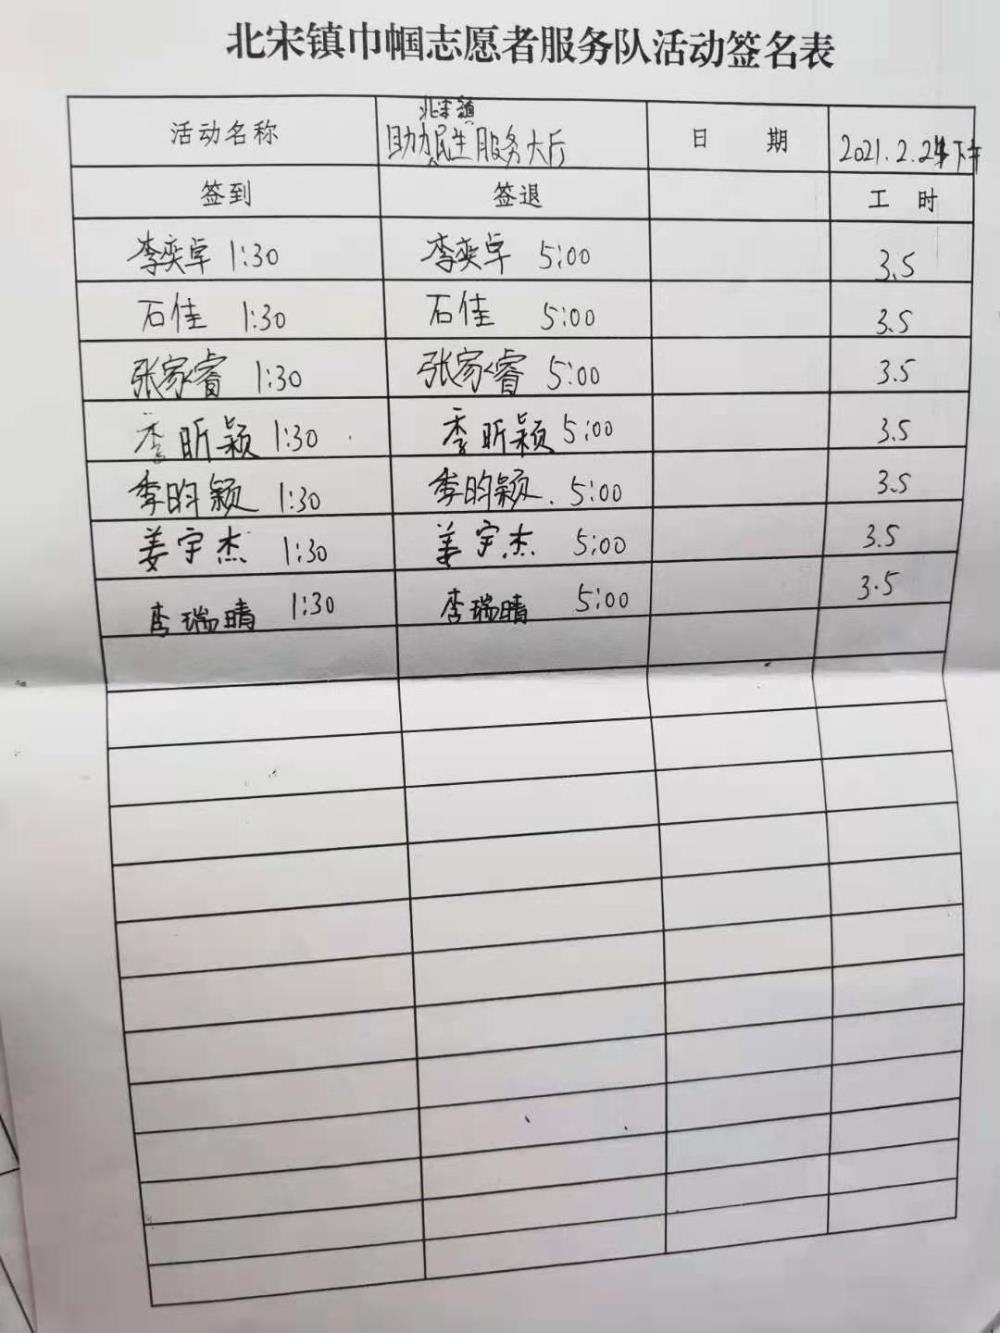 北宋镇巾帼志愿者服务队活动签名表
活动名称 北宋镇 助力民生服务大厅 日 期 2021.2.24下午
签到 签退 工 时
李奕卓 1:30 李奕卓 5:00 3.5
石佳 1:30 石佳 5:00 3.5
张家睿 1:30 张家睿 5:00 3.5
季昕颖 1:30 季昕颖 5:00 3.5
季昀颖 1:30 季昀颖. 5:00 3.5
姜宇杰 1:30 姜宇杰 5:00 3.5
李瑞晴 1:30 李瑞晴 5:00 3.5